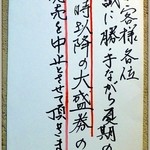 客様各位
誠に勝手ながら夏期の
時以降の大盛券の
売を中止とさせて頂きま